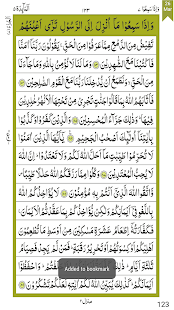 26 Mar
وَاِذَا سَمِعُوْا ٧
١٢٣
اَلْمَآئِدَة ٥
وَاِذَا سَمِعُوْا مَاۤ اُنْزِلَ اِلَى الرَّسُوْلِ تَرٰۤى اَعْيُنَهُمْ
تَفِيْضُ مِنَ الدَّمْعِ مِمَّا عَرَفُوْا مِنَ الْحَقِّ ۚ يَقُوْلُوْنَ رَبَّنَاۤ اٰمَنَّا
فَاكْتُبْنَا مَعَ الشّٰهِدِيْنَ ﴿٨٣﴾ وَمَا لَنَا لَا نُؤْمِنُ بِاللّٰهِ وَمَا جَآءَنَا
مِنَ الْحَقِّ ۙ وَنَطْمَعُ اَنْ يُّدْخِلَنَا رَبُّنَا مَعَ الْقَوْمِ الصّٰلِحِيْنَ ﴿٨٤﴾
فَاَثَابَهُمُ اللّٰهُ بِمَا قَالُوْا جَنّٰتٍ تَجْرِيْ مِنْ تَحْتِهَا الْاَنْهٰرُ خٰلِدِيْنَ
فِيْهَا ؕ وَذٰلِكَ جَزَآءُ الْمُحْسِنِيْنَ ﴿٨٥﴾ وَالَّذِيْنَ كَفَرُوْا وَكَذَّبُوْا بِاٰيٰتِنَاۤ
اُولٰٓئِكَ اَصْحٰبُ الْجَحِيْمِ ﴿٨٦﴾ يٰۤاَيُّهَا الَّذِيْنَ اٰمَنُوْا لَا تُحَرِّمُوْا
طَيِّبٰتِ مَاۤ اَحَلَّ اللّٰهُ لَكُمْ وَلَا تَعْتَدُوْا ؕ اِنَّ اللّٰهَ لَا يُحِبُّ
الْمُعْتَدِيْنَ ﴿٨٧﴾ وَكُلُوْا مِمَّا رَزَقَكُمُ اللّٰهُ حَلٰلًا طَيِّبًا وَّاتَّقُوا اللّٰهَ
الَّذِيْۤ اَنْتُمْ بِهٖ مُؤْمِنُوْنَ ﴿٨٨﴾ لَا يُؤَاخِذُكُمُ اللّٰهُ
بِاللَّغْوِ فِيْۤ اَيْمَانِكُمْ وَلٰكِنْ يُّؤَاخِذُكُمْ بِمَا عَقَّدْتُّمُ الْاَيْمَانَ ۚ
فَكَفَّارَتُهٗۤ اِطْعَامُ عَشَرَةِ مَسٰكِيْنَ مِنْ اَوْسَطِ مَا تُطْعِمُوْنَ
اَهْلِيْكُمْ اَوْ كِسْوَتُهُمْ اَوْ تَحْرِيْرُ رَقَبَةٍ ؕ فَمَنْ لَّمْ يَجِدْ فَصِيَامُ
ثَلٰثَةِ اَيَّامٍ ؕ ذٰلِكَ كَفَّارَةُ اَيْمَانِكُمْ اِذَا حَلَفْتُمْ ؕ وَاحْفَظُوْۤا
اَيْمَانَكُمْ ؕ كَذٰلِكَ يُبَيِّنُ اللّٰهُ لَكُمْ اٰيٰتِهٖ لَعَلَّكُمْ تَشْكُرُوْنَ ﴿٨٩﴾
Added to bookmark
منزل ٢
123